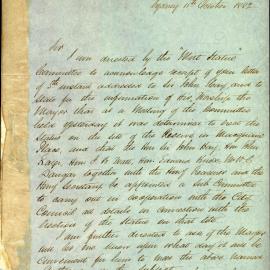 Sydney 11th October 1882
Sir
I am directed by the "Mort Statue"
Committee to acknowledge receipt of your letter
of 5th instant addressed to Sir John Hay, and to
state for the information of His Worship the
Mayor that at a Meeting of the Committee
held yesterday it was determined to erect the
Statue on the site of the Reserve in Macquarie
Place, and that the Hon Sir John Hay, Hon John
Hon
Dangar together with the Hony Treasurer and the
Hony Secretary be appointed a Sub Committee
to carry out in cooperation with the City
Council all details in connection with the
erection of the Statue on that site
I am further directed to ask if the Mayor
will let me know upon what day it will be
convenient for him to meet the above named